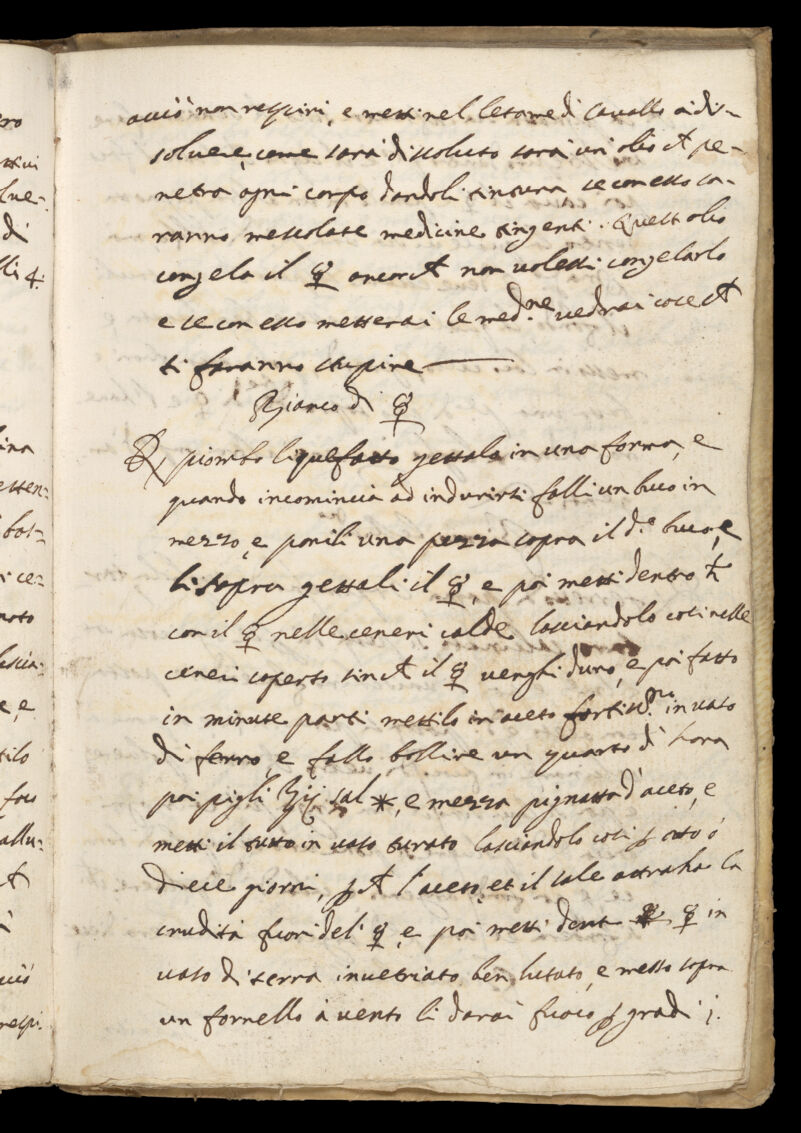 acciò non respiri, e metti nel letame di Cavallo à dis-
solvere, come sarà dissoluto sarà un olio ch pe-
netra ogni corpo dandoli tintura, se con esso sa-
ranno mescolate medicine tingenti. Quest olio
congela il ☿ ancorch non volessi congelarlo
e se con esso metterai le med.ne vedrai cose ch
ti faranno stupire
Bianco di ☿
℞ piombo liquefatto gettala in una forma, e
quando incomincia ad indurirsi falli un buco in
mezzo, e ponili una pezza sopra il d.o buco, e
li sopra gettali il ☿, e poi metti dentro
con il ☿ nelle ceneri calde lasciandolo così nelle
ceneri coperto sin ch il ☿ venghi duro, e poi fatto
in minute parti mettilo in aceto fortiss.mo in vaso
di ferro, e fallo bollire un quarto d' hora
poi pigli ℥ij sal *, e mezza pignatta d'aceto, e
metti il tutto in vaso turato lasciandolo così p otto ò
diece giorni, p ch l'aceto, et il sale attraha la
crudità fuori del ☿, e poi metti ☿ in
vaso di terra invetriato ben lutato, e messo sopra
un fornello à vento li darai fuoco p gradi j.
ro
di
li 4:
ina
etten=
bol=
i ce=
noto
lascia=
e, e
tilo
allu=
ch
respi.